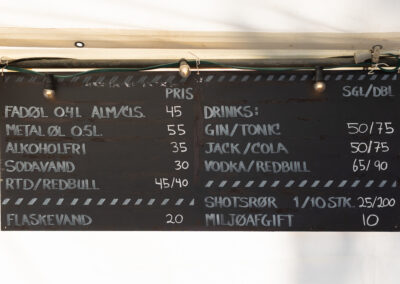 PRIS
FADØL 04L ALM/CLS. 45
METALØL 05L. 55
ALKOHOLFRI 35
SODAVAND 30
RTD/REDBULL 45/40
FLASKEVAND 20
SGL/DBL
DRINKS:
GIN/TONIC 50/75
JACK/COLA 50/75
VODKA/REDBULL 65/90
SHOTSRØR 1/10 STK. 25/200
MILJØAFGIFT 10